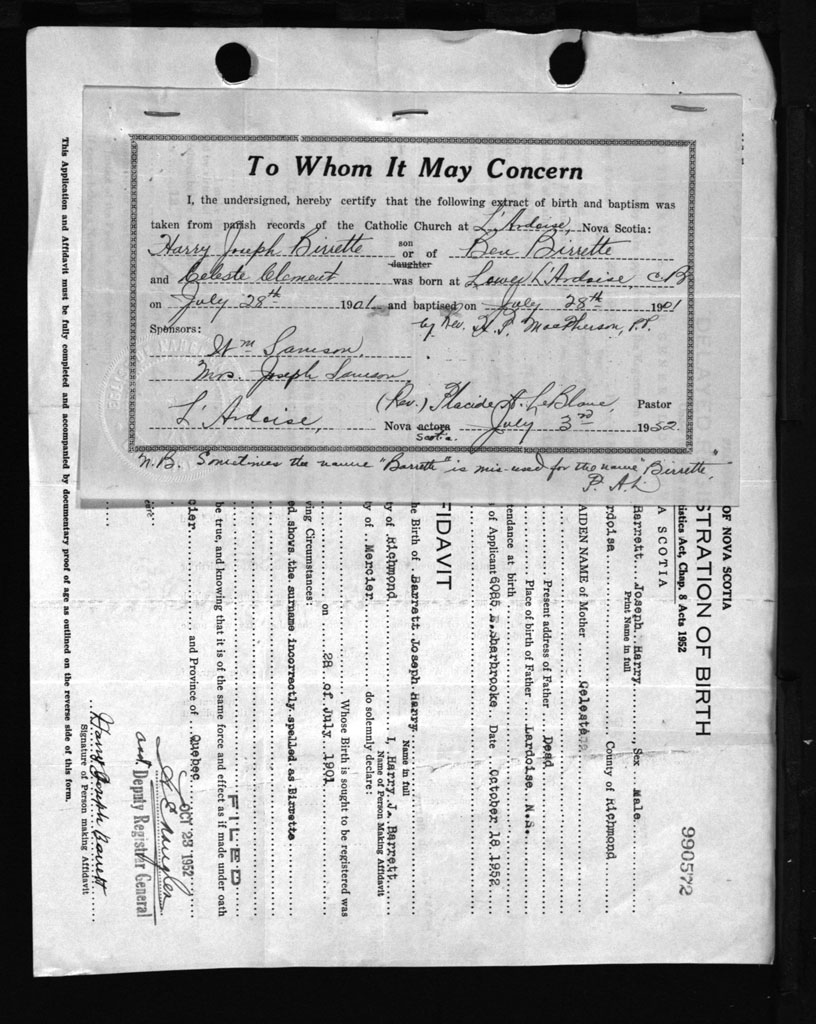 To Whom It May Concern
I, the undersigned, hereby certify that the following extract of birth and baptism was
taken from parish records of the Catholic Church at L'Ardoise, Nova Scotia:
Harry Joseph Birrette son or daughter of Ben Birrette
and Celeste Clement was born at Lower L'Ardoise, C.B
on July 28th 1901 and baptised on July 28th 1901
by Rev. MacPherson, P.P.
Sponsors:
Wm Samson,
Mrs. Joseph Samson
(Rev.) Placide A. LeBlanc, Pastor
L'Ardoise, Nova actora Scotia. July 3rd 1952.
N.B. Sometimes the name "Barrette" is mis-used for the name "Birrette"
P. A. L.
990572
OF NOVA SCOTIA
STRATION OF BIRTH
istics Act, Chap. 8 Acts 1952
A SCOTIA
Barrett Joseph Harry, Sex Male
Print Name in full
rdoise County of Richmond
AIDEN NAME of Mother Celeste
Present address of Father Dead
Place of birth of Father Lardoise N.S.
tendance at birth
of Applicant 6085 E. Sharbrooke Date October 18, 1952
FIDAVIT
he Birth of Barrett Joseph Harry
Name in full
ty of Richmond I, Harry J. Barrett
Name of Person Making Affidavit
ty of Mercier do solemnly declare:
Whose Birth is sought to be registered was
on 28 of July 1901
ving Circumstances:
ed shows the surname incorrectly spelled as Birrette
be true, and knowing that it is of the same force and effect as if made under oath
FILED
cier and Province of Quebec
OCT 23 1952
Deputy Registrar General
Harry Joseph Barrett
Signature of Person making Affidavit
This Application and Affidavit must be fully completed and accompanied by documentary proof of age as outlined on the reverse side of this form.